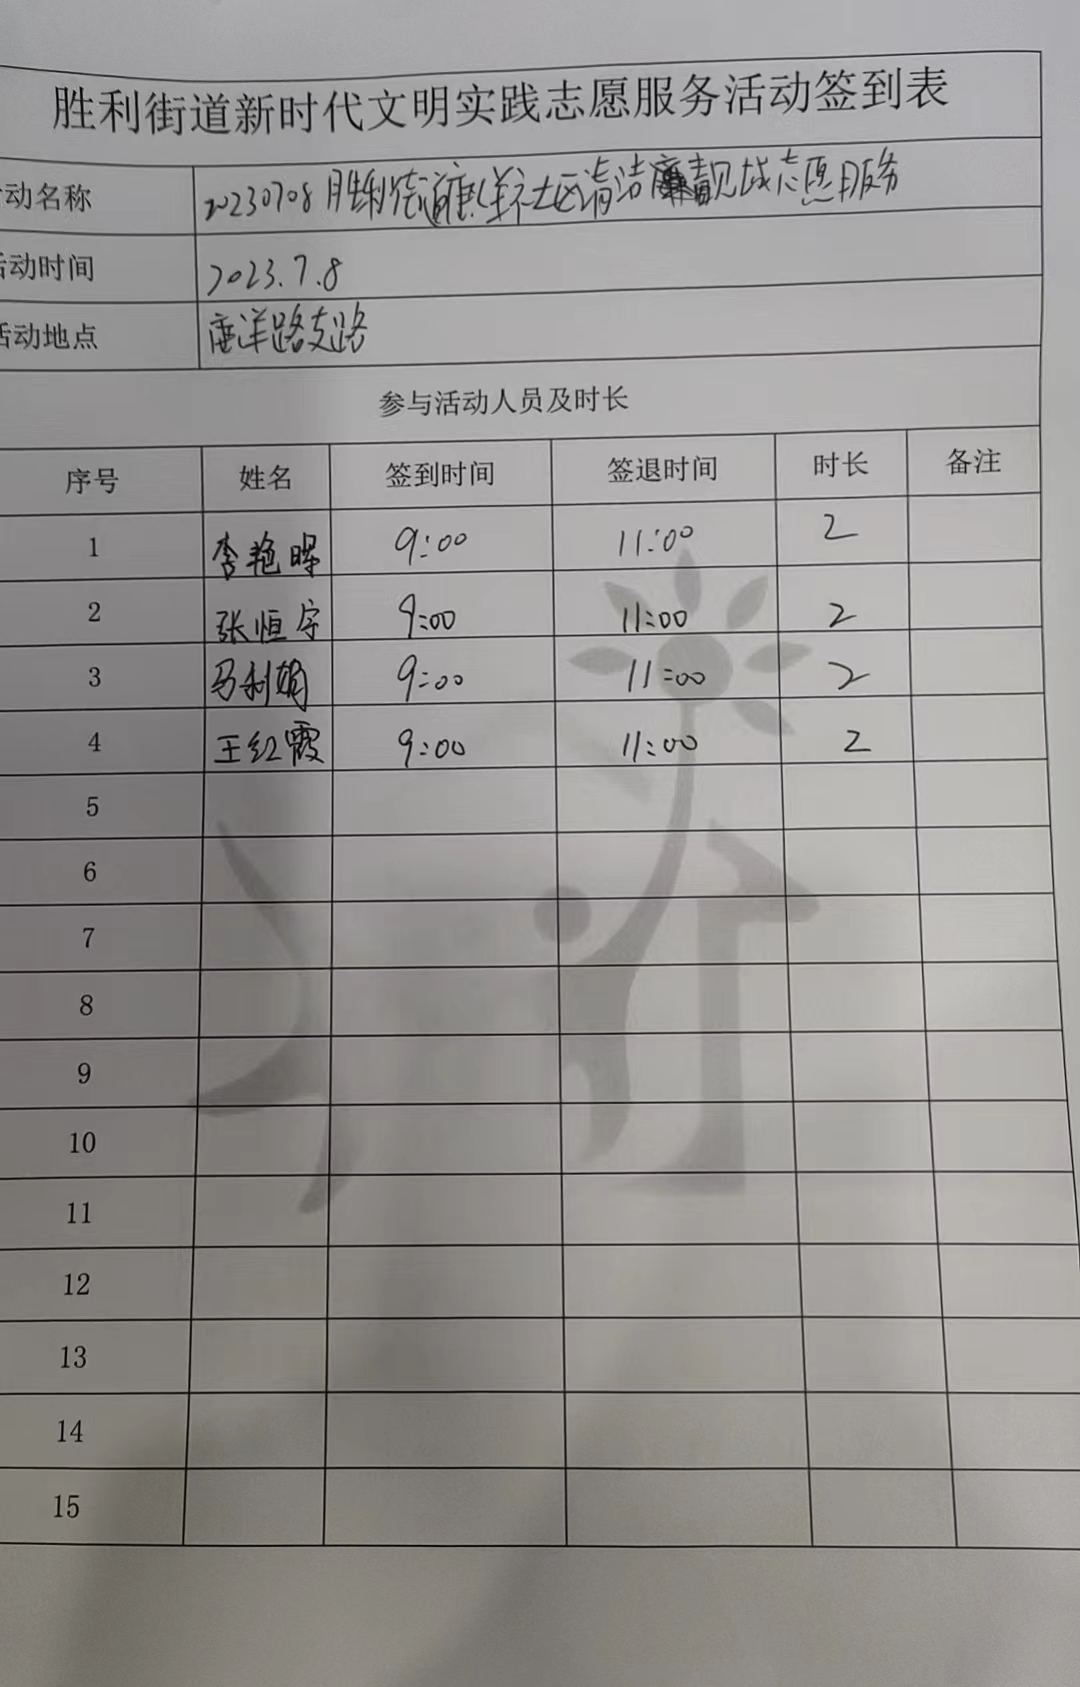 胜利街道新时代文明实践志愿服务活动签到表
动名称 20230708胜利街道 社区清洁 靓城志愿服务
活动时间 2023.7.8
活动地点 洋路支路
参与活动人员及时长
序号 姓名 签到时间 签退时间 时长 备注
1 李艳晖 9:00 11:00 2
2 张恒宇 9:00 11:00 2
3 马利娟 9:00 11:00 2
4 王红霞 9:00 11:00 2
5
6
7
8
9
10
11
12
13
14
15